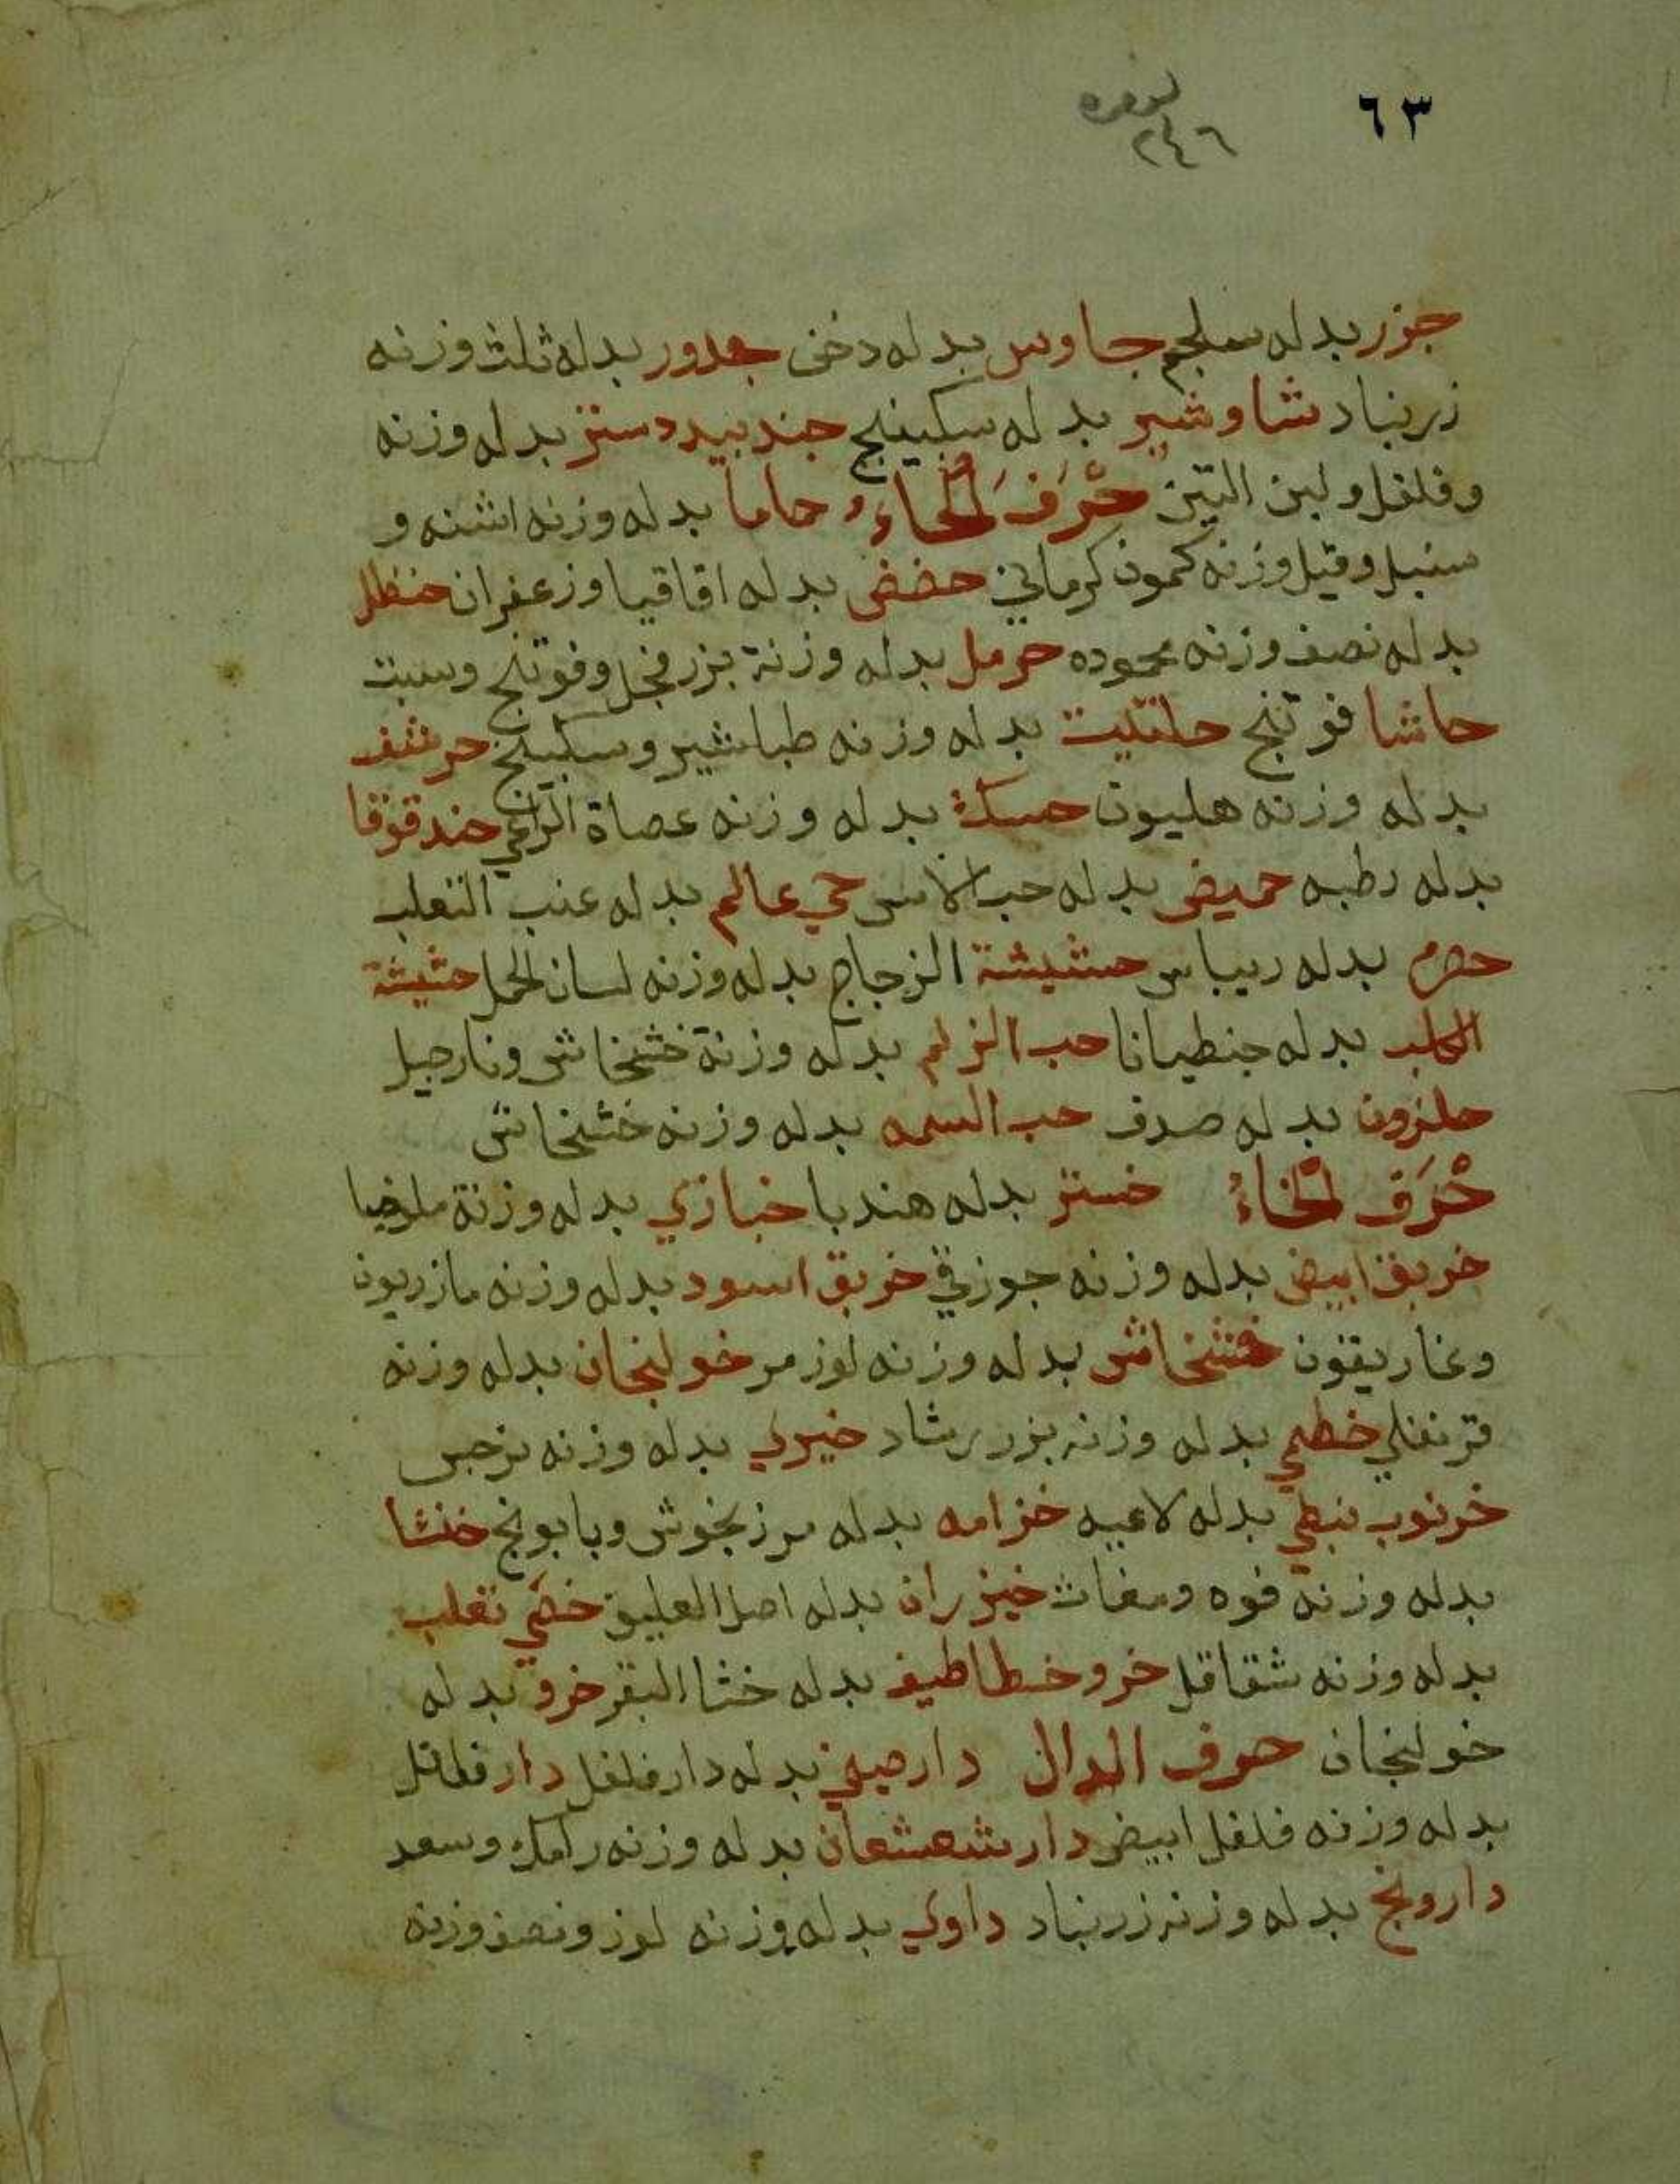 ٦٣
٢٤٦
جزر بدله سلجم جاوس بدله دخن جدور بدله ثلث وزنه
زرنباد شاوشير بدله سكبينج جندبيددستر بدله وزنه
وفلفل ولبن التين حرف الحاء حاما بدله وزنه اشنه و
سنبل وقيل وزنه كمون كرماني حضض بدله اقاقيا وزعفران حنظل
بدله نصف وزنه محموده حرمل بدله وزنة بزر فجل وفوتنج وسبت
حاشا فوتنج حلتيت بدله وزنه طباشير وسكبينج حرشف
بدله وزنه هليون حسك بدله وزنه عصاة الراعي حندقوقا
بدله رطبه حميض بدله حب الاس حي عالم بدله عنب الثعلب
حصرم بدله ريباس حشيشة الزجاج بدله وزنه لسان الحمل حشيشة
الكلب بدله جنطيانا حب الزلم بدله وزنة خشخاش ونارجيل
حلزون بدله صدف حب السمنه بدله وزنه خشخاش
حرف الخاء خس بدله هندبا خبازي بدله وزنة ملوخيا
خربق ابيض بدله وزنه جوزقي خربق اسود بدله وزنه مازريون
وغاريقون خشخاش بدله وزنه لوز مر خولنجان بدله وزنه
قرنفلي خطمي بدله وزنه بزر رشاد خيري بدله وزنه نرجس
خرنوب نبطي بدله لاعيه خزامه بدله مرزنجوش وبابونج خنثا
بدله وزنه فوه ومغاث خيزران بدله اصل العليق خصي ثعلب
بدله وزنه شقاقل خرو خطاطيف بدله خثا البقر خرو بدله
خولنجان حرف الدال دارصيني بدله دارفلفل دارفلفل
بدله وزنه فلفل ابيض دارشعشعان بدله وزنه رامك وسعد
دارونج بدله وزنه زرنباد داوي بدله وزنه لوز ونصف وزنه